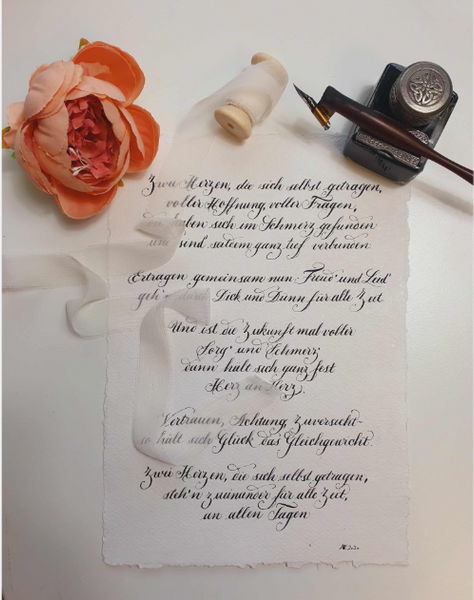 Zwei Herzen, die sich selbst getragen,
voller Hoffnung, voller Fragen,
die haben sich im Schmerz gefunden
und sind seitdem ganz tief verbunden
Ertragen gemeinsam nun Freud' und Leid
geh'n durch Dick und Dünn für alle Zeit
Und ist die Zukunft mal voller
Sorg' und Schmerz,
dann hält sich ganz fest
Herz an Herz.
Vertrauen, Achtung, Zuversicht-
so hält sich Glück das Gleichgewicht.
Zwei Herzen, die sich selbst getragen,
steh'n zueinander für alle Zeit,
an allen Tagen